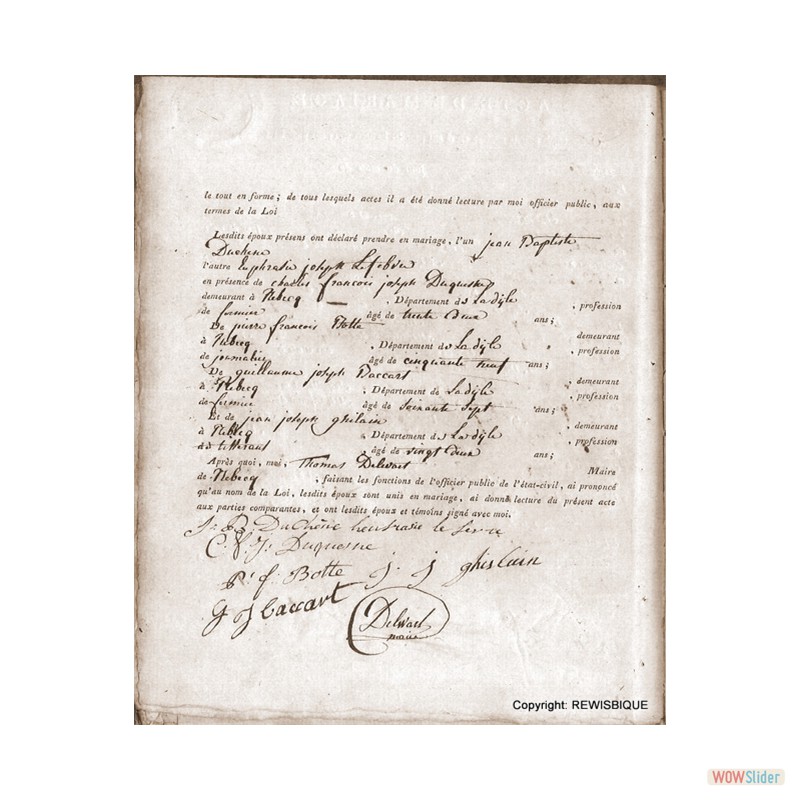 le tout en forme; de tous lesquels actes il a été donné lecture par moi officier public, aux
termes de la Loi
Lesdits époux présens ont déclaré prendre en mariage, l'un jean Baptiste
Duchene
l'autre Euphrasie joseph Lefebvre
en présence de charles françois joseph Duquesne
demeurant à Rebecq , Département de La dyle , profession
de fermier âgé de trente deux ans;
De pierre françois Botte demeurant
à Rebecq , Département de La dyle , profession
de journalier âgé de cinquante neuf ans;
De guillaume joseph Baccart , demeurant
à Rebecq , Département de La dyle , profession
de fermier âgé de soixante sept ans;
Et de jean joseph ghilain , demeurant
à Rebecq , Département de La dyle , profession
âgé de vingt deux ans;
Après quoi, moi, Thomas Delwart Maire
de Rebecq , faisant les fonctions de l'officier public de l'état-civil, ai prononcé
qu'au nom de la Loi, lesdits époux sont unis en mariage, ai donné lecture du présent acte
aux parties comparantes, et ont lesdits époux et témoins signé avec moi.
J: B: Duchêne heufrasie le fevre
C. f. J: Duquesne
P. f. Botte j. j ghislain
g J baccart
Delwart
maire
Copyright: REWISBIQUE
WOWSlider